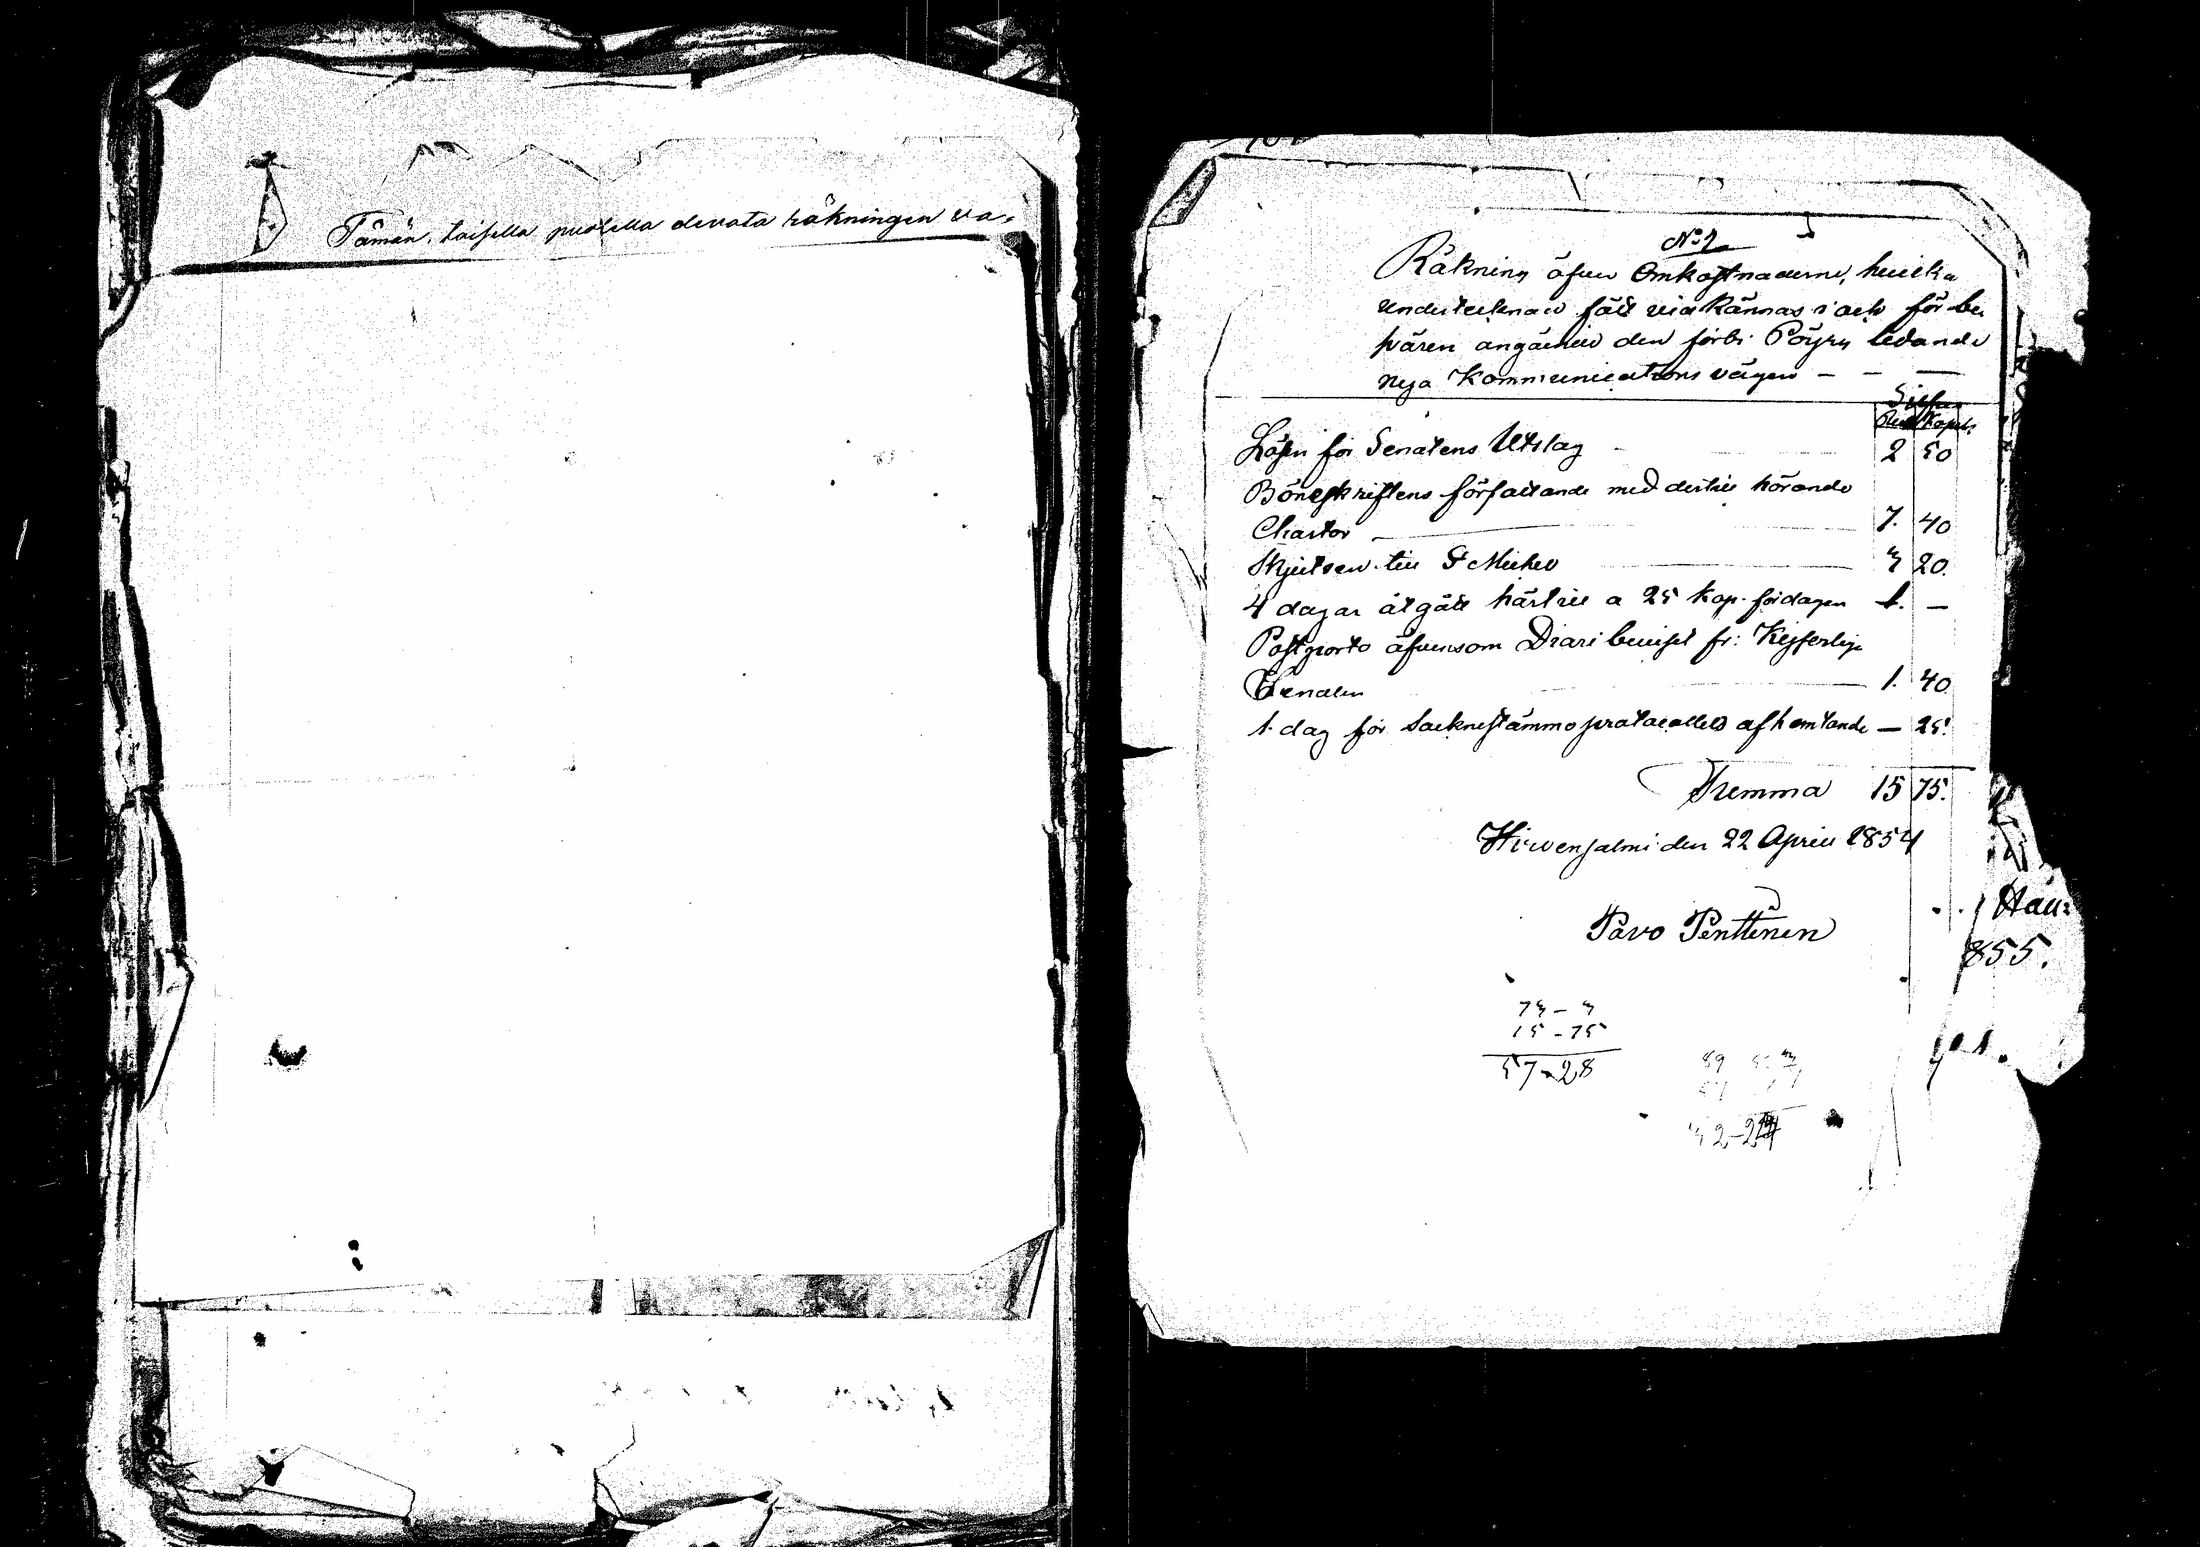 Tämän toisella puolella olevata räkningin va-
No 2
Räkning öfver Omkostnaderne, hvilka
undertecknad fått vidkännas i och för be-
svären angående den förbi Pöyry ledande
nya Kommunications vägen — — —
Silfver
Rub Kopek:
Lösen för Senatens Utslag 2 50
Böneskriftens författande med dertill hörande
Chartor 7. 40
Skjutsen till St Michel 3 20.
4 dagar åtgått härtill a 25 kop. för dagen 1. —
Postporto äfvensom Diari beviset fr: Kejserliga
Senaten 1. 40
1 dag för Socknestämmo protocollets afhemtande — 25.
Summa 15 75.
Hirvensalmi den 22 April 1854
Pavo Penttinen
855.
73 - 3
15 - 75
57 - 28